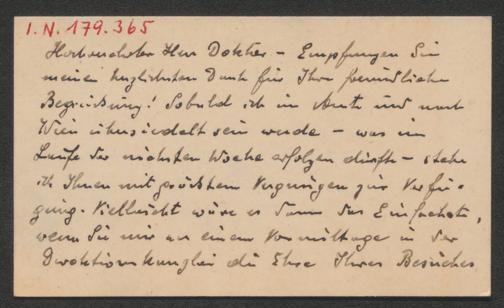 I.N. 179.365
Hochverehrter Herr Doktor – Empfangen Sie
meinen herzlichsten Dank für Ihre freundliche
Begrüssung! Sobald ich im Amte und nach
Wien übersiedelt sein werde – was im
Laufe der nächsten Woche erfolgen dürfte – stehe
ich Ihnen mit grösstem Vergnügen zur Verfü-
gung. Vielleicht wäre es dann das Einfachste,
wenn Sie mir an einem Vormittage in der
Direktionskanzlei die Ehre Ihres Besuches